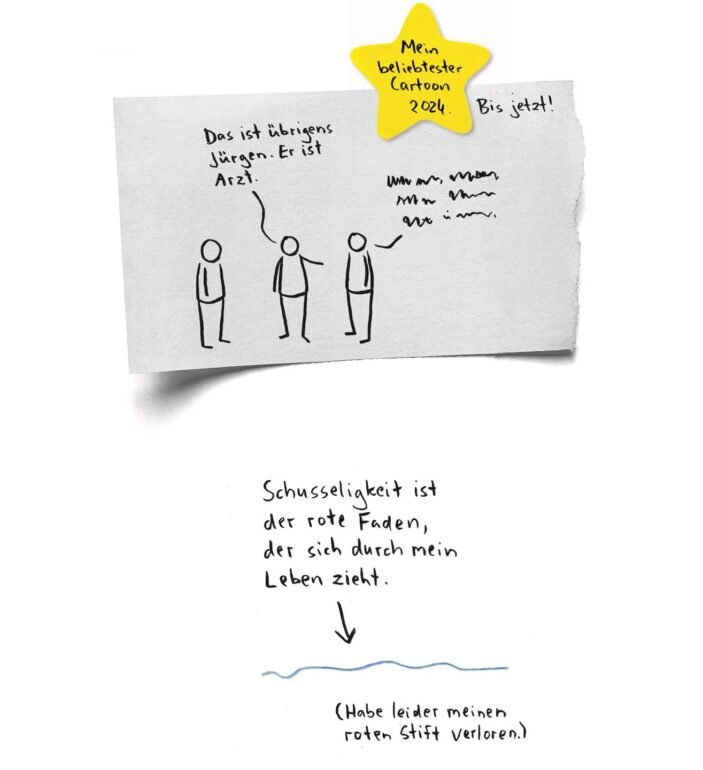 Mein
beliebtester
Cartoon
2024.
Bis jetzt!
Das ist übrigens
Jürgen. Er ist
Arzt.
Schusseligkeit ist
der rote Faden,
der sich durch mein
Leben zieht.
(Habe leider meinen
roten Stift verloren.)